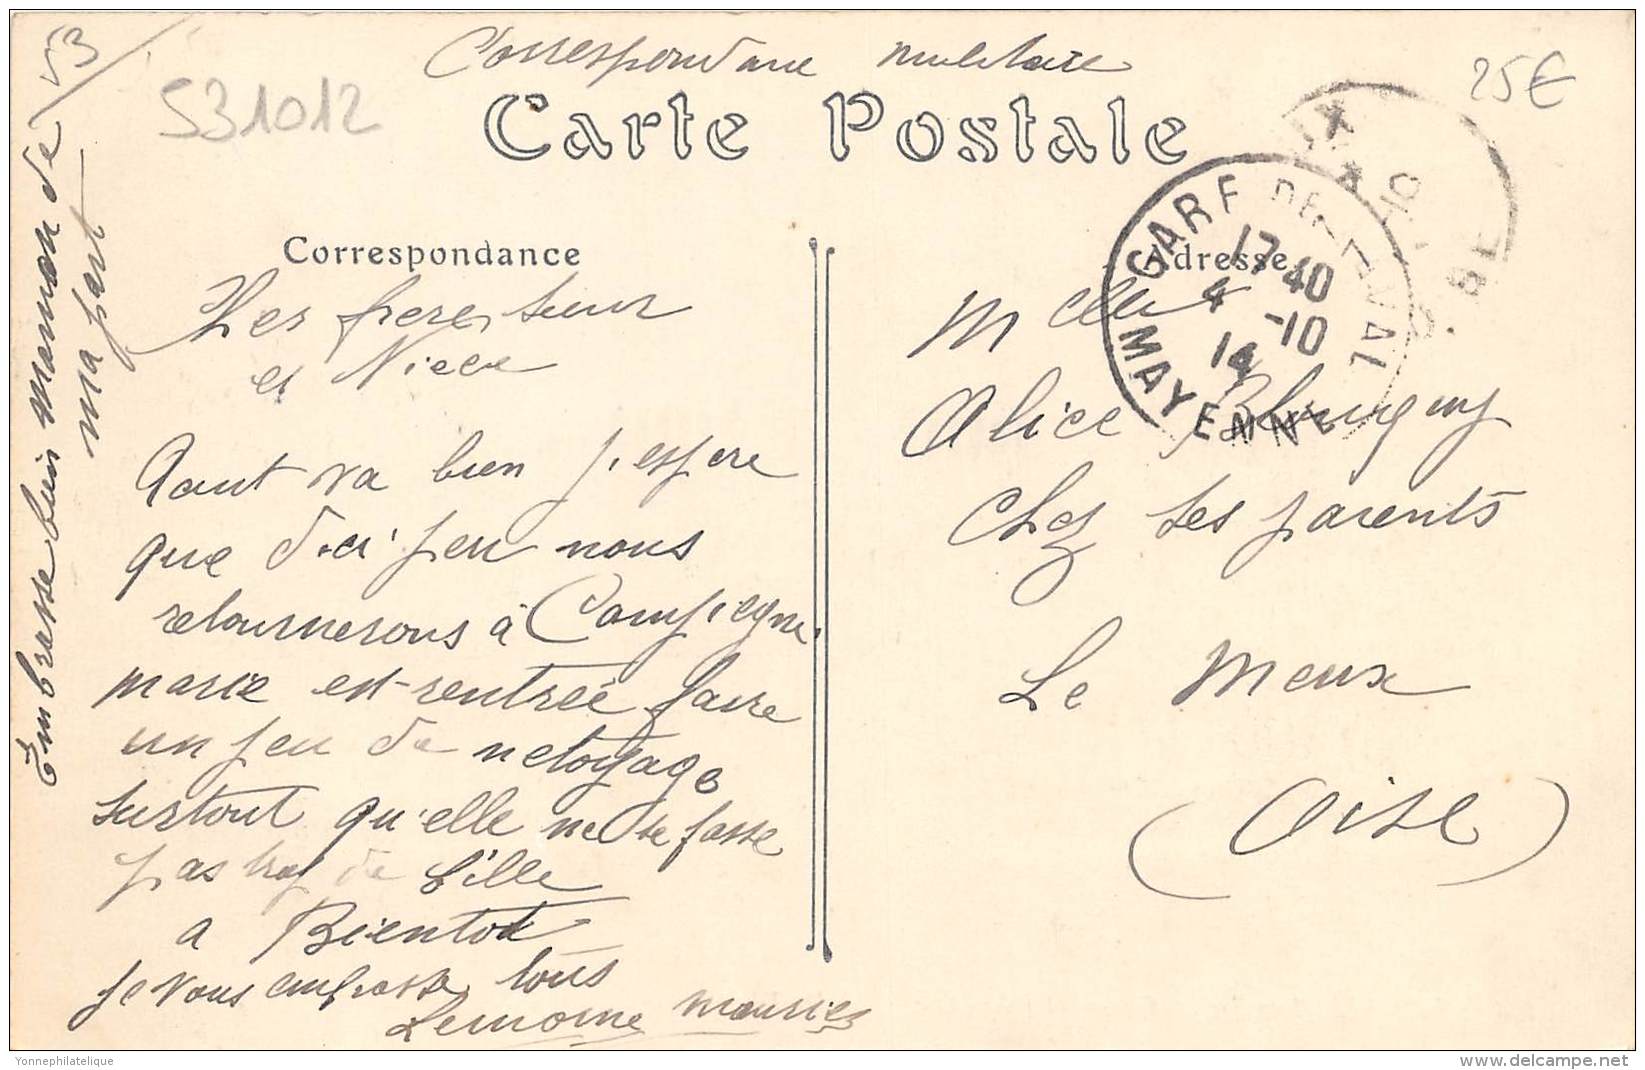 Correspondance militaire
25€
53
531012
Carte Postale
Correspondance
Adresse
GARE DE LAVAL
17 40
4 -10
14
MAYENNE
Embrasse bien maman de
ma part
et Niece
Tout va bien j'espere
que d'ici peu nous
retournerons à Compiegne
marie est rentrée faire
un peu de netoyage
surtout qu'elle ne se fasse
pas trop de bille
a Bientot
je vous embrasse tous
Lemoine Maurice
Melle
Alice
Chez ses parents
Le Meux
(Oise)
Yonnephilatelique
delcampe.net